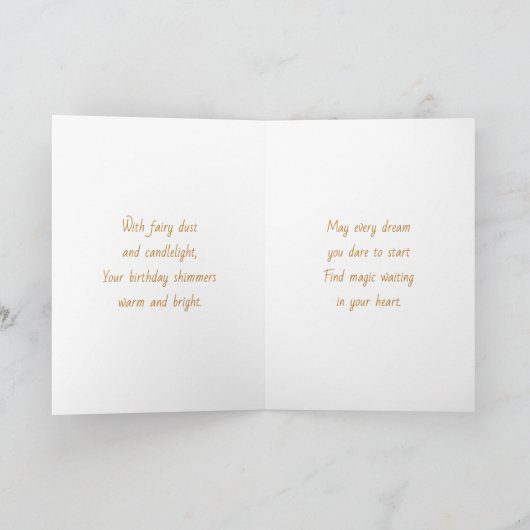 With fairy dust
and candlelight,
Your birthday shimmers
warm and bright.
May every dream
you dare to start
Find magic waiting
in your heart.